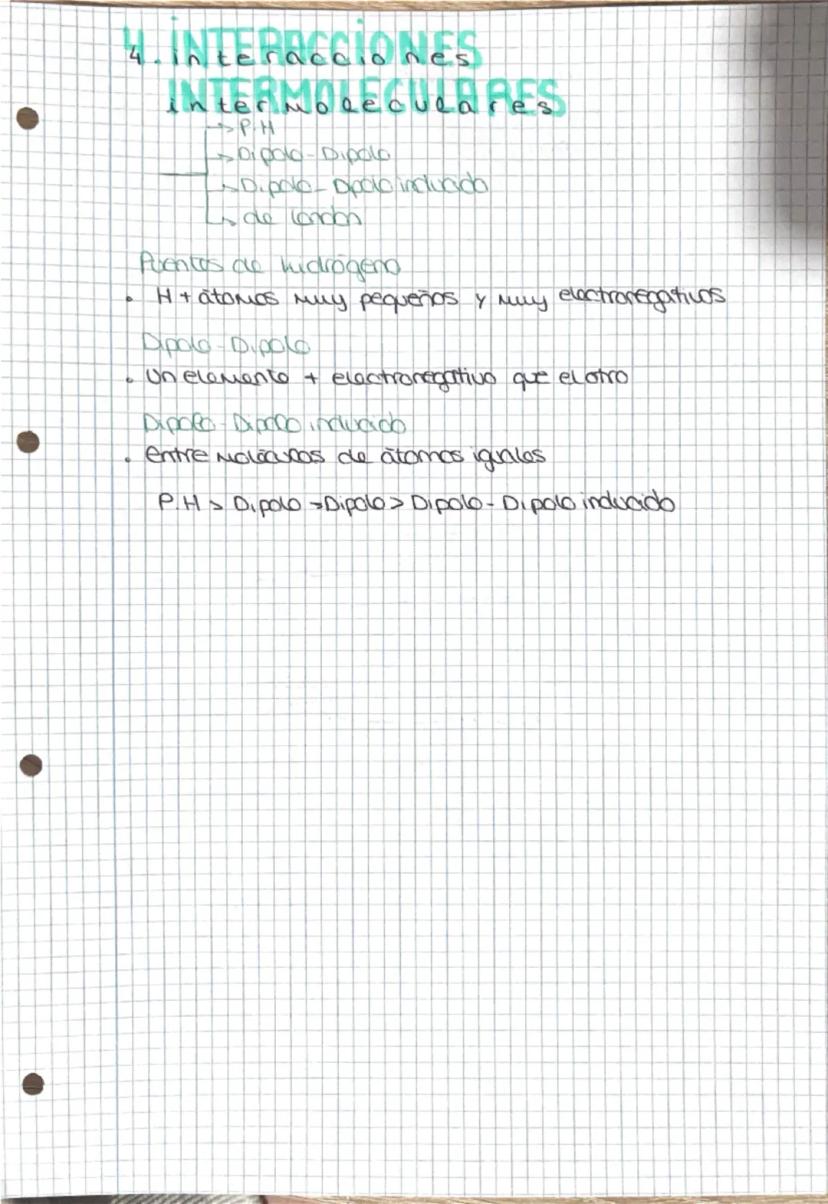 4. interacciones
intermoleculares
→ P.H
→ Dipolo-Dipolo
→ Dipolo-Dipolo inducido
→ de London
Puentes de hidrógeno
• H + átomos muy pequeños y muy electronegativos
Dipolo-Dipolo
• Un elemento + electronegativo que el otro
Dipolo-Dipolo inducido
• Entre moléculas de átomos iguales
P.H > Dipolo-Dipolo > Dipolo-Dipolo inducido